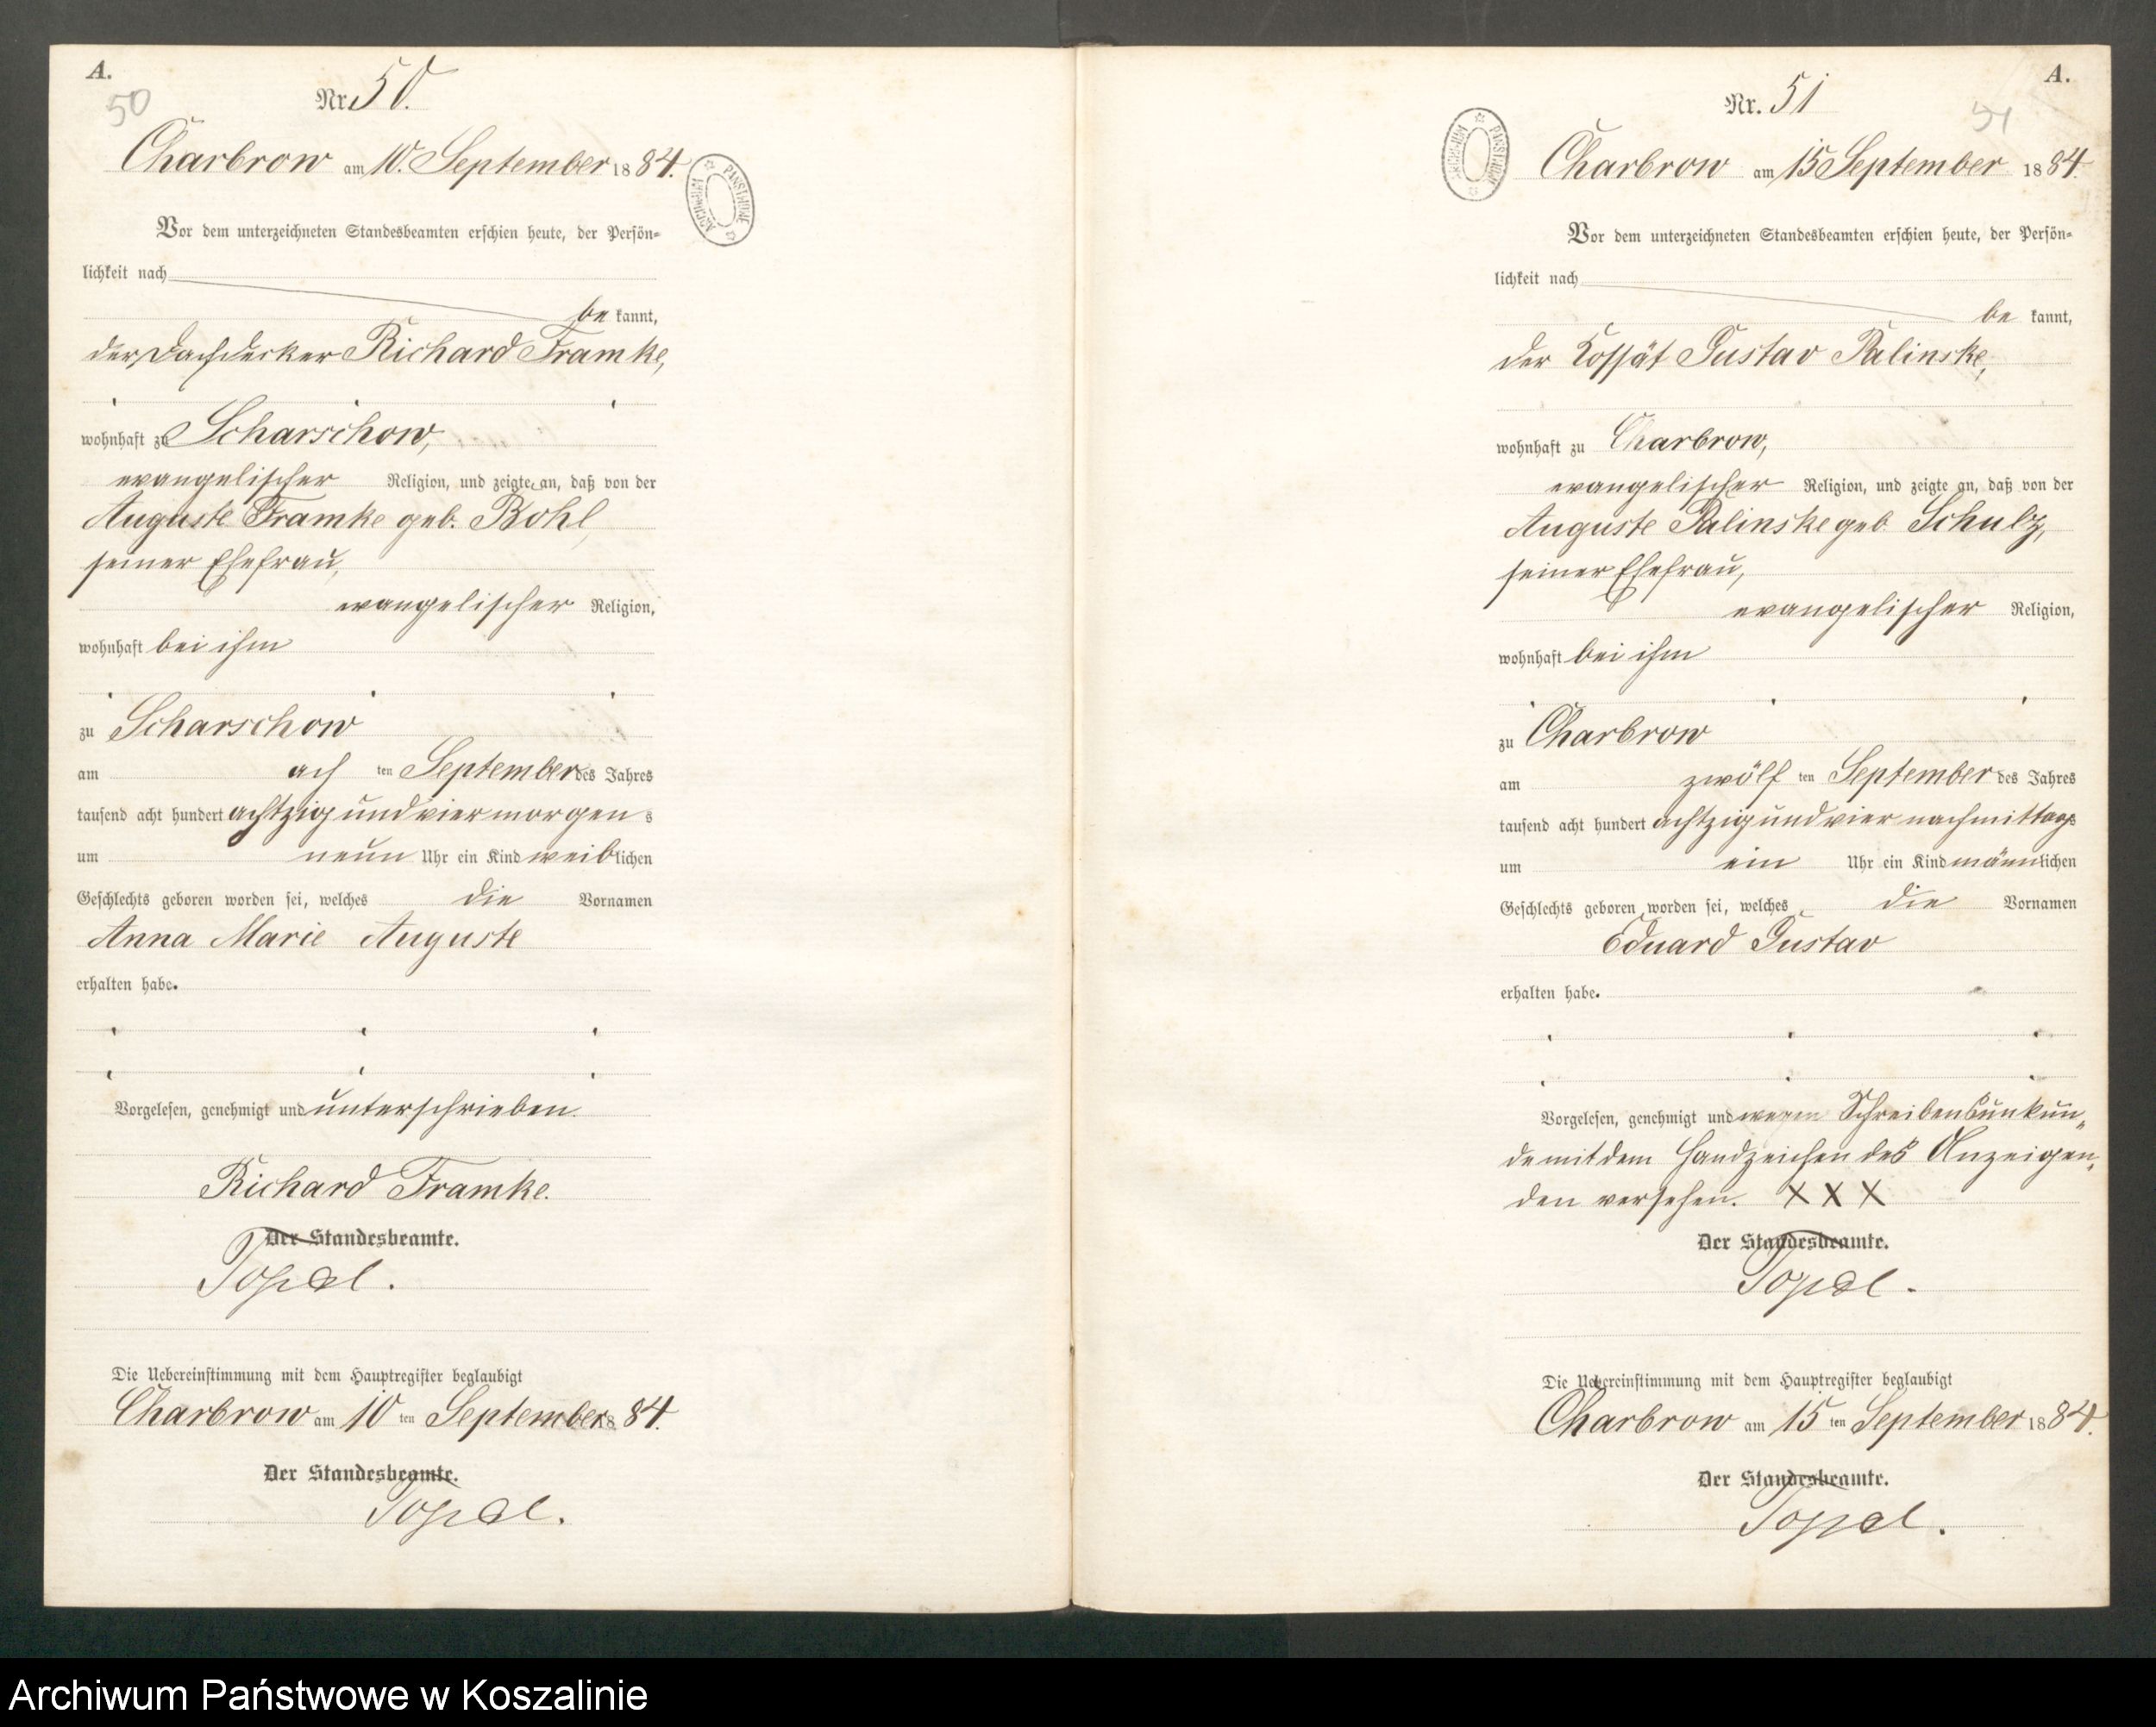 A.
50
Nr. 50.
Charbrow am 10. September 1884.
ARCHIWUM PAŃSTWOWE
Vor dem unterzeichneten Standesbeamten erschien heute, der Persön-
lichkeit nach
be kannt,
der Dachdecker Richard Framke,
wohnhaft zu Scharschow,
evangelischer Religion, und zeigte an, daß von der
Auguste Framke geb. Bohl,
seiner Ehefrau,
evangelischer Religion,
wohnhaft bei ihm
zu Scharschow
am ach ten September des Jahres
tausend acht hundert achtzig und vier morgen s
um neun Uhr ein Kind weiblichen
Geschlechts geboren worden sei, welches die Vornamen
Anna Marie Auguste
erhalten habe.
Vorgelesen, genehmigt und unterschrieben.
Richard Framke.
Der Standesbeamte.
Die Uebereinstimmung mit dem Hauptregister beglaubigt
Charbrow am 10 ten September 1884.
Der Standesbeamte.
A.
51
Nr. 51
Charbrow am 15 September 1884.
ARCHIWUM PAŃSTWOWE
Vor dem unterzeichneten Standesbeamten erschien heute, der Persön-
lichkeit nach
be kannt,
der Kossät Gustav Palinske,
wohnhaft zu Charbrow,
evangelischer Religion, und zeigte an, daß von der
Auguste Palinske geb. Schulz,
seiner Ehefrau,
evangelischer Religion,
wohnhaft bei ihm
zu Charbrow
am zwölf ten September des Jahres
tausend acht hundert achtzig und vier nachmittags
um ein Uhr ein Kind männlichen
Geschlechts geboren worden sei, welches die Vornamen
Eduard Gustav
erhalten habe.
Vorgelesen, genehmigt und wegen Schreibensunkun-
de mit dem Handzeichen des Anzeigen-
den versehen. X X X
Der Standesbeamte.
Die Uebereinstimmung mit dem Hauptregister beglaubigt
Charbrow am 15 ten September 1884.
Der Standesbeamte.
Archiwum Państwowe w Koszalinie